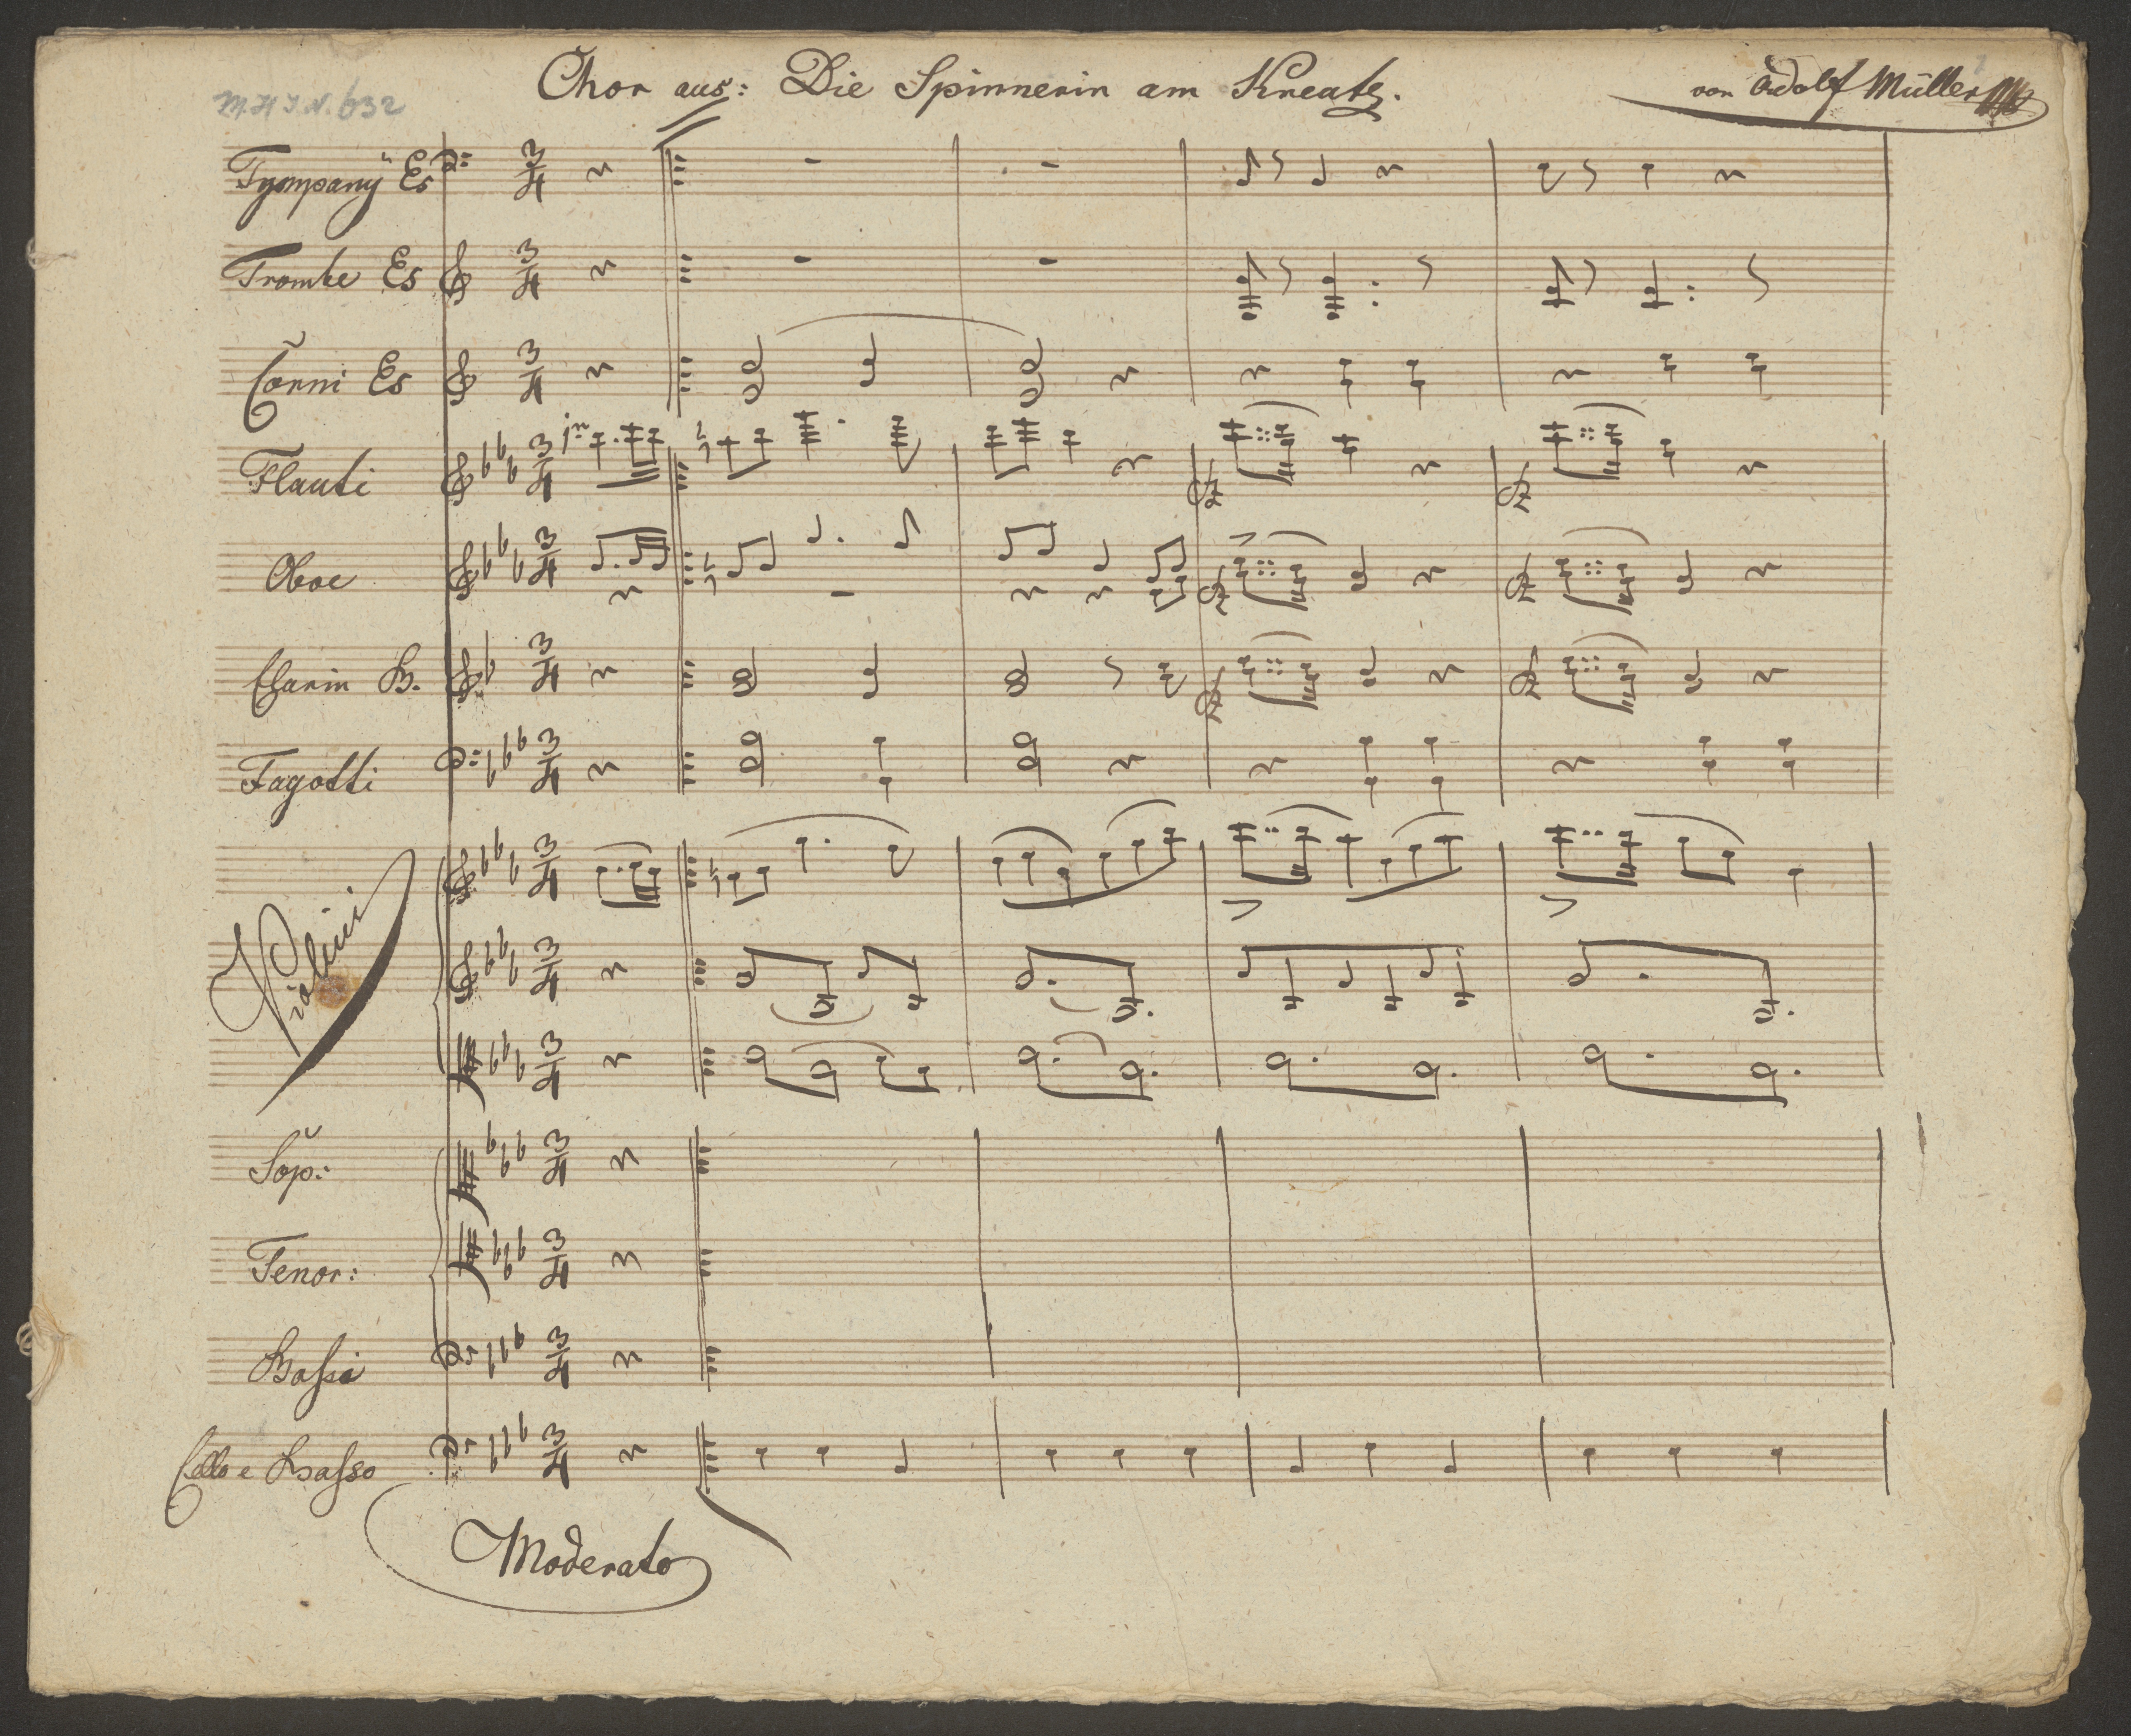 M.H.I.N. 632
Chor aus: Die Spinnerin am Kreutz.
von Adolf Müller
Tympany Es
Trombe Es
Corni Es
Flauti
Oboe
Clarin B.
Fagotti
Violini
Sop:
Tenor:
Bassi
Cello e Basso
Moderato